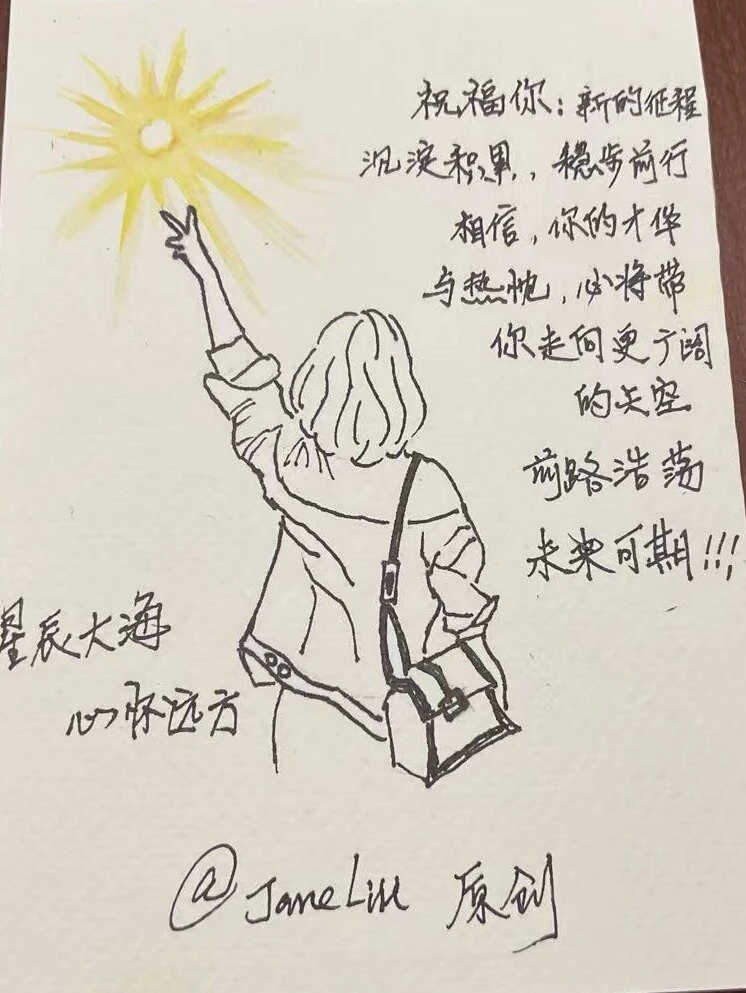 祝福你：新的征程
沉淀积累，稳步前行
相信，你的才华
与热忱，必将带
你走向更广阔
的天空
前路浩荡
未来可期!!!
星辰大海
心怀远方
@Jane Liu 原创